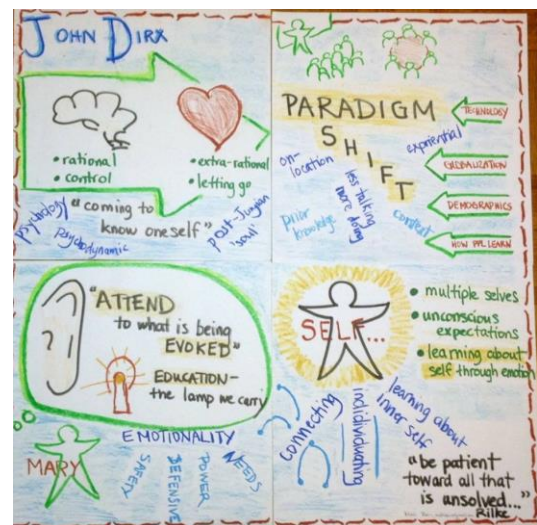 JOHN DIRX
• rational
• control
• extra-rational
• letting go
psychology
"coming to
know oneself"
psychodynamic
post-Jungian
'soul'
PARADIGM
SHIFT
TECHNOLOGY
GLOBALIZATION
DEMOGRAPHICS
HOW PPL LEARN
on-
location
experiential
less talking
more doing
prior
knowledge
context
"ATTEND
to what is being
EVOKED"
EDUCATION-
the lamp we carry
MARY
EMOTIONALITY
SAFETY
DEFENSIVE
POWER
NEEDS
SELF...
• multiple selves
• unconscious
expectations
• learning about
self through emotion
connecting
indidividuating
learning about
inner self
"be patient
toward all that
is unsolved..."
Rilke